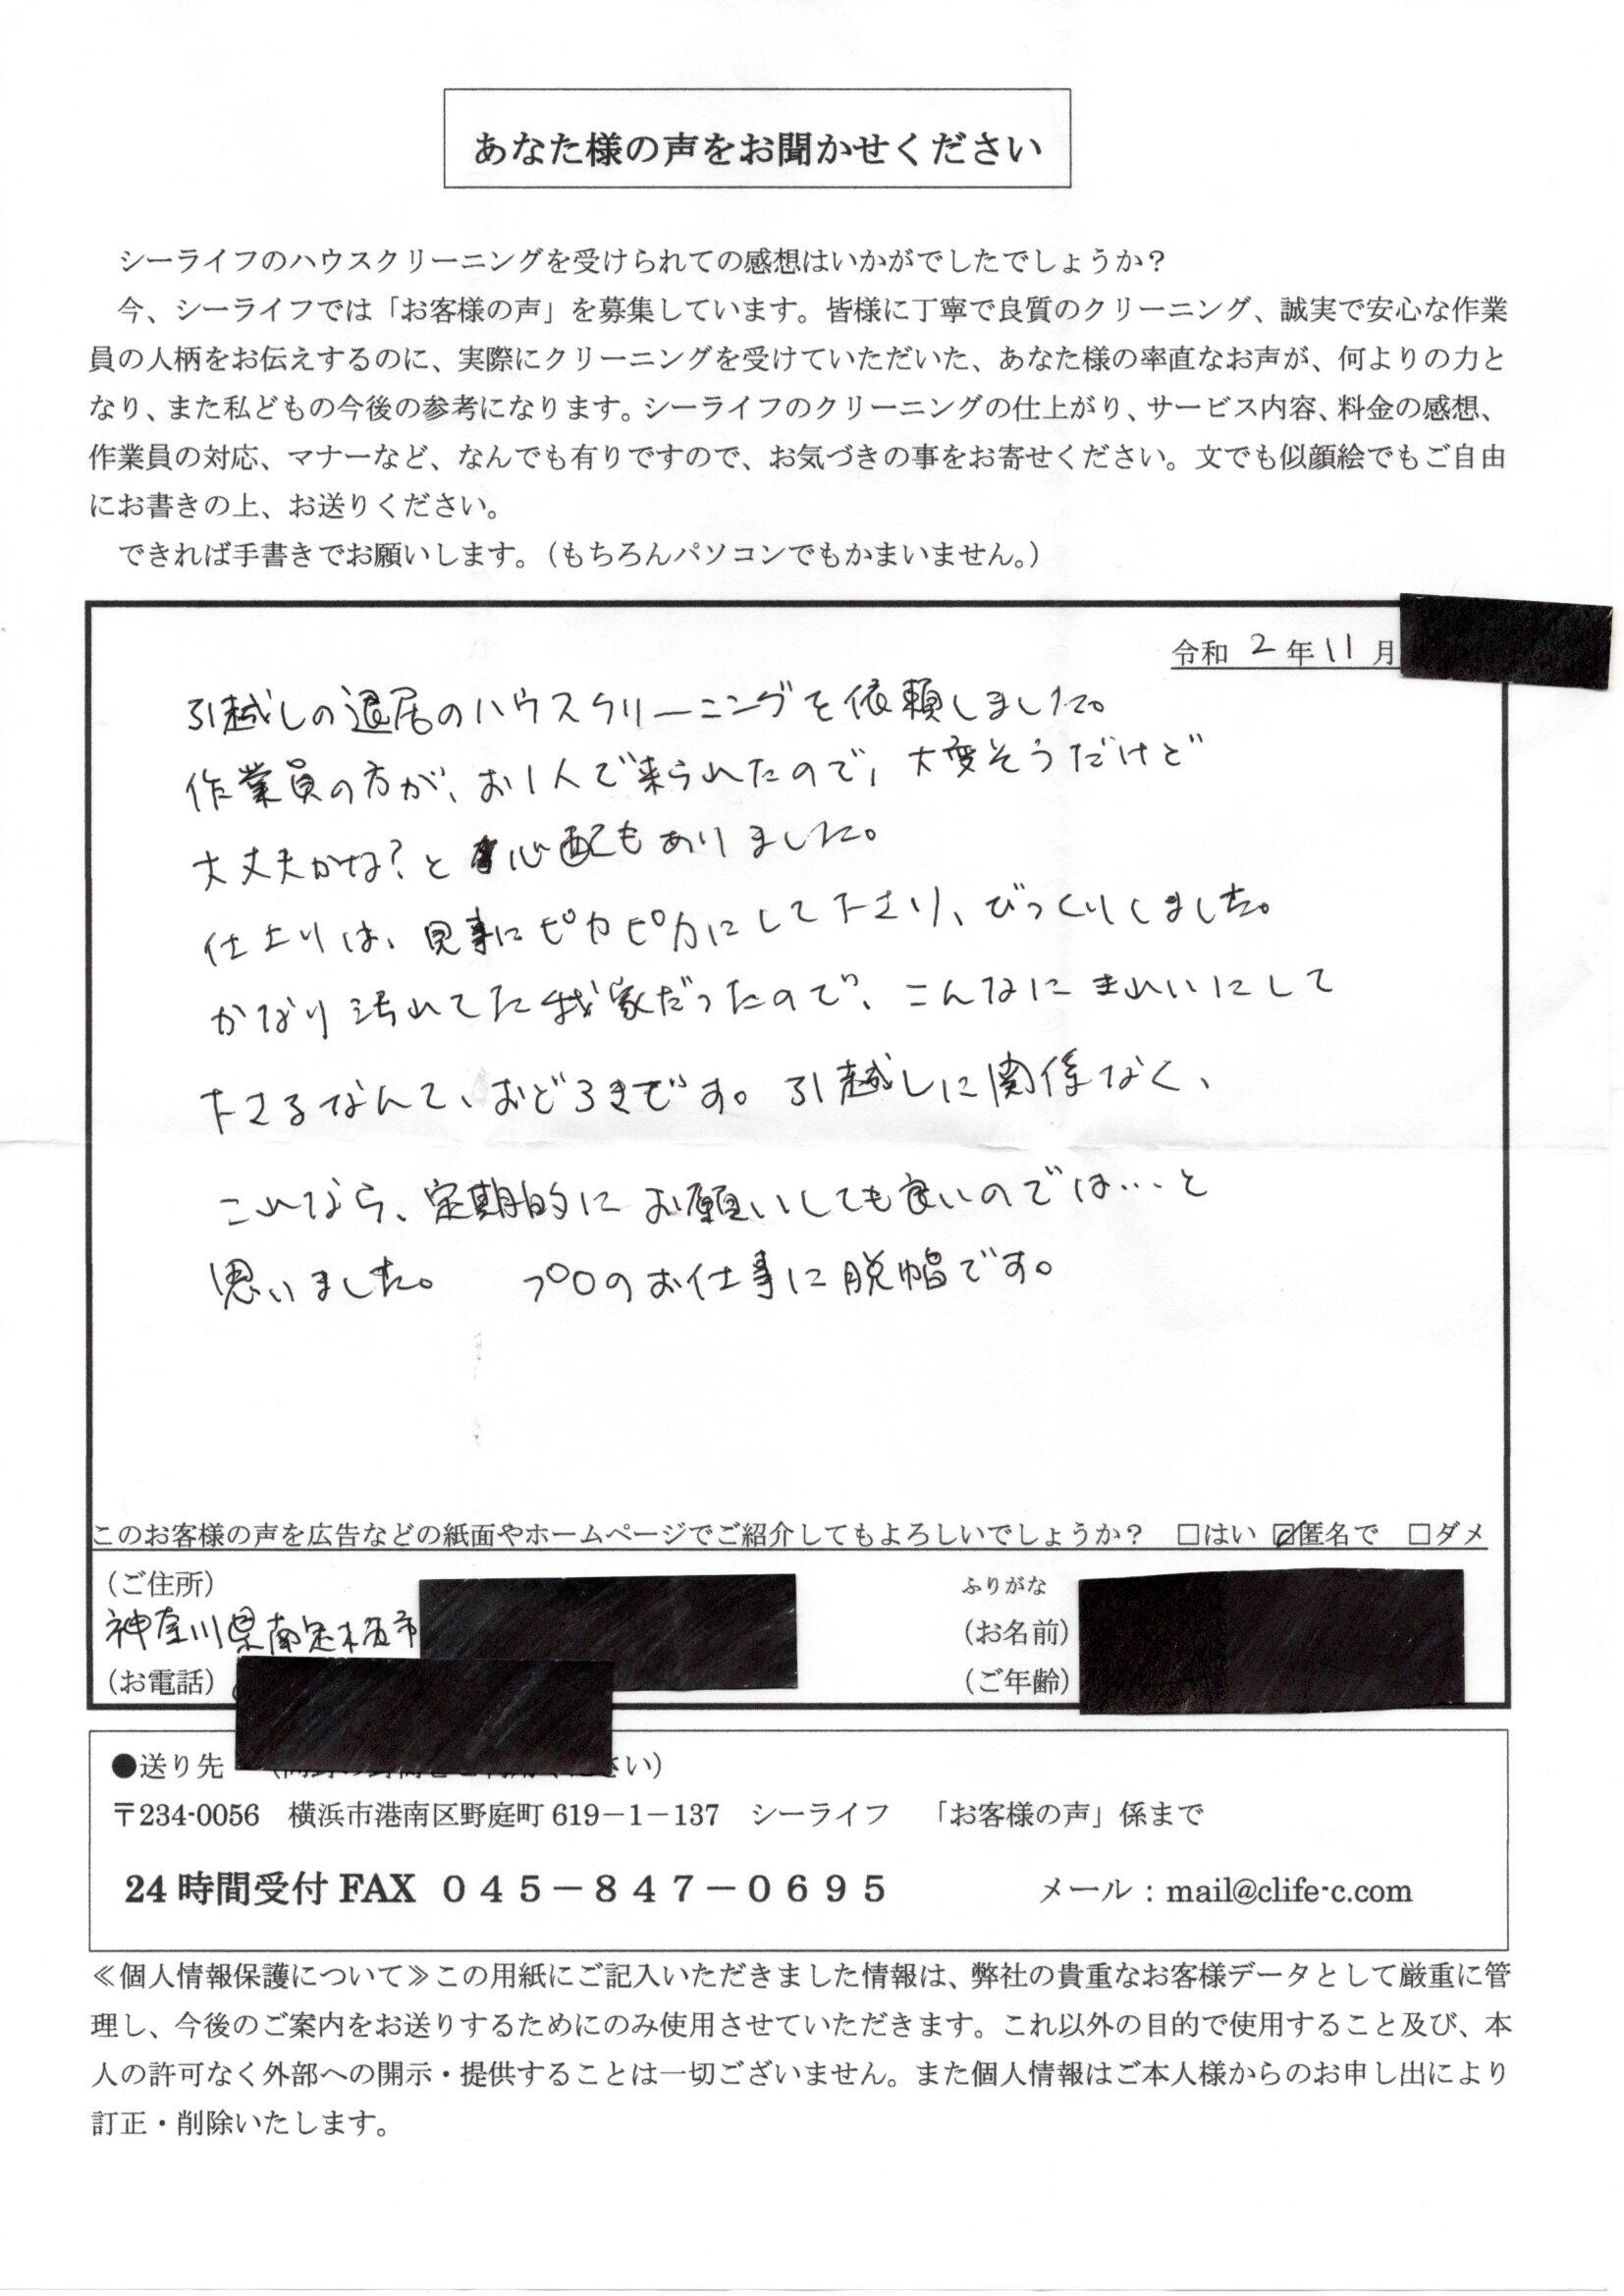 あなた様の声をお聞かせください
シーライフのハウスクリーニングを受けられての感想はいかがでしたでしょうか？
今、シーライフでは「お客様の声」を募集しています。皆様に丁寧で良質のクリーニング、誠実で安心な作業
員の人柄をお伝えするのに、実際にクリーニングを受けていただいた、あなた様の率直なお声が、何よりの力と
なり、また私どもの今後の参考になります。シーライフのクリーニングの仕上がり、サービス内容、料金の感想、
作業員の対応、マナーなど、なんでも有りですので、お気づきの事をお寄せください。文でも似顔絵でもご自由
にお書きの上、お送りください。
できれば手書きでお願いします。（もちろんパソコンでもかまいません。）
令和 2 年 11 月
引越しの退居のハウスクリーニングを依頼しました。
作業員の方が、お1人で来られたので、大変そうだけど
大丈夫かな？と心配もありました。
仕上りは、見事にピカピカにして下さり、びっくりしました。
かなり汚れてた我家だったので、こんなにきれいにして
下さるなんて、おどろきです。引越しに関係なく、
これなら、定期的にお願いしても良いのでは…と
思いました。 プロのお仕事に脱帽です。
このお客様の声を広告などの紙面やホームページでご紹介してもよろしいでしょうか？ □はい ☑匿名で □ダメ
（ご住所） ふりがな
神奈川県南足柄市 （お名前）
（お電話） （ご年齢）
●送り先 さい）
〒234-0056 横浜市港南区野庭町 619－1－137 シーライフ 「お客様の声」係まで
24 時間受付 FAX ０４５－８４７－０６９５ メール：mail@clife-c.com
≪個人情報保護について≫この用紙にご記入いただきました情報は、弊社の貴重なお客様データとして厳重に管
理し、今後のご案内をお送りするためにのみ使用させていただきます。これ以外の目的で使用すること及び、本
人の許可なく外部への開示・提供することは一切ございません。また個人情報はご本人様からのお申し出により
訂正・削除いたします。